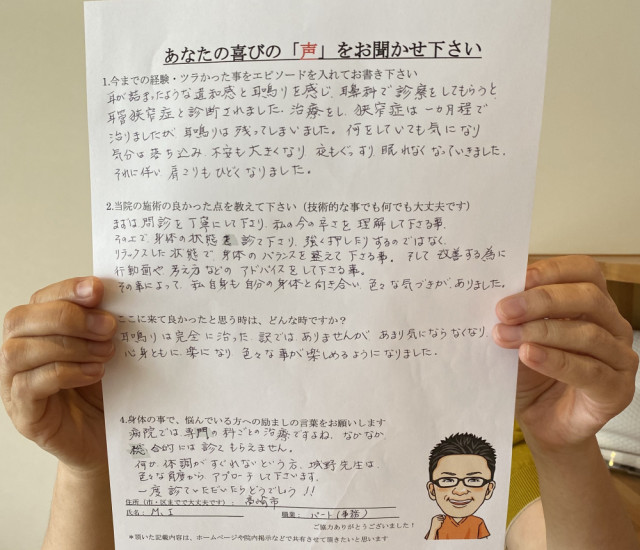 あなたの喜びの「声」をお聞かせ下さい
1.今までの経験・ツラかった事をエピソードを入れてお書き下さい
耳が詰まったような違和感と耳鳴りを感じ、耳鼻科で診察をしてもらうと、
耳管狭窄症と診断されました。治療をし、狭窄症は一カ月程で
治りましたが、耳鳴りは残ってしまいました。何をしていても気になり
気分は落ち込み、不安も大きくなり、夜もぐっすり眠れなくなっていきました。
それに伴い、肩こりもひどくなりました。
2.当院の施術の良かった点を教えて下さい（技術的な事でも何でも大丈夫です）
まずは問診を丁寧にして下さり、私の今の辛さを理解して下さる事、
その上で、身体の状態を診て下さり、強く押したりするのではなく、
リラックスした状態で、身体のバランスを整えて下さる事。そして改善する為に
行動面や考え方などのアドバイスをして下さる事。
その事によって、私自身も自分の身体と向き合い、色々な気づきがありました。
ここに来て良かったと思う時は、どんな時ですか？
耳鳴りは完全に治った訳ではありませんが、あまり気にならなくなり、
心身ともに楽になり、色々な事が楽しめるようになりました。
4.身体の事で、悩んでいる方への励ましの言葉をお願いします
病院では、専門の科ごとの治療ですよね、なかなか
総合的には診てもらえません。
何か体調がすぐれないという方、城野先生は、
色々な角度から、アプローチして下さいます。
一度診ていただいたらどうでしょう!!
住所（市・区までで大丈夫です）：高崎市
氏名：M.I 職業：パート（事務）
ご協力ありがとうございました！
＊頂いた記載内容は、ホームページや院内掲示などで共有させて頂きたいと思います